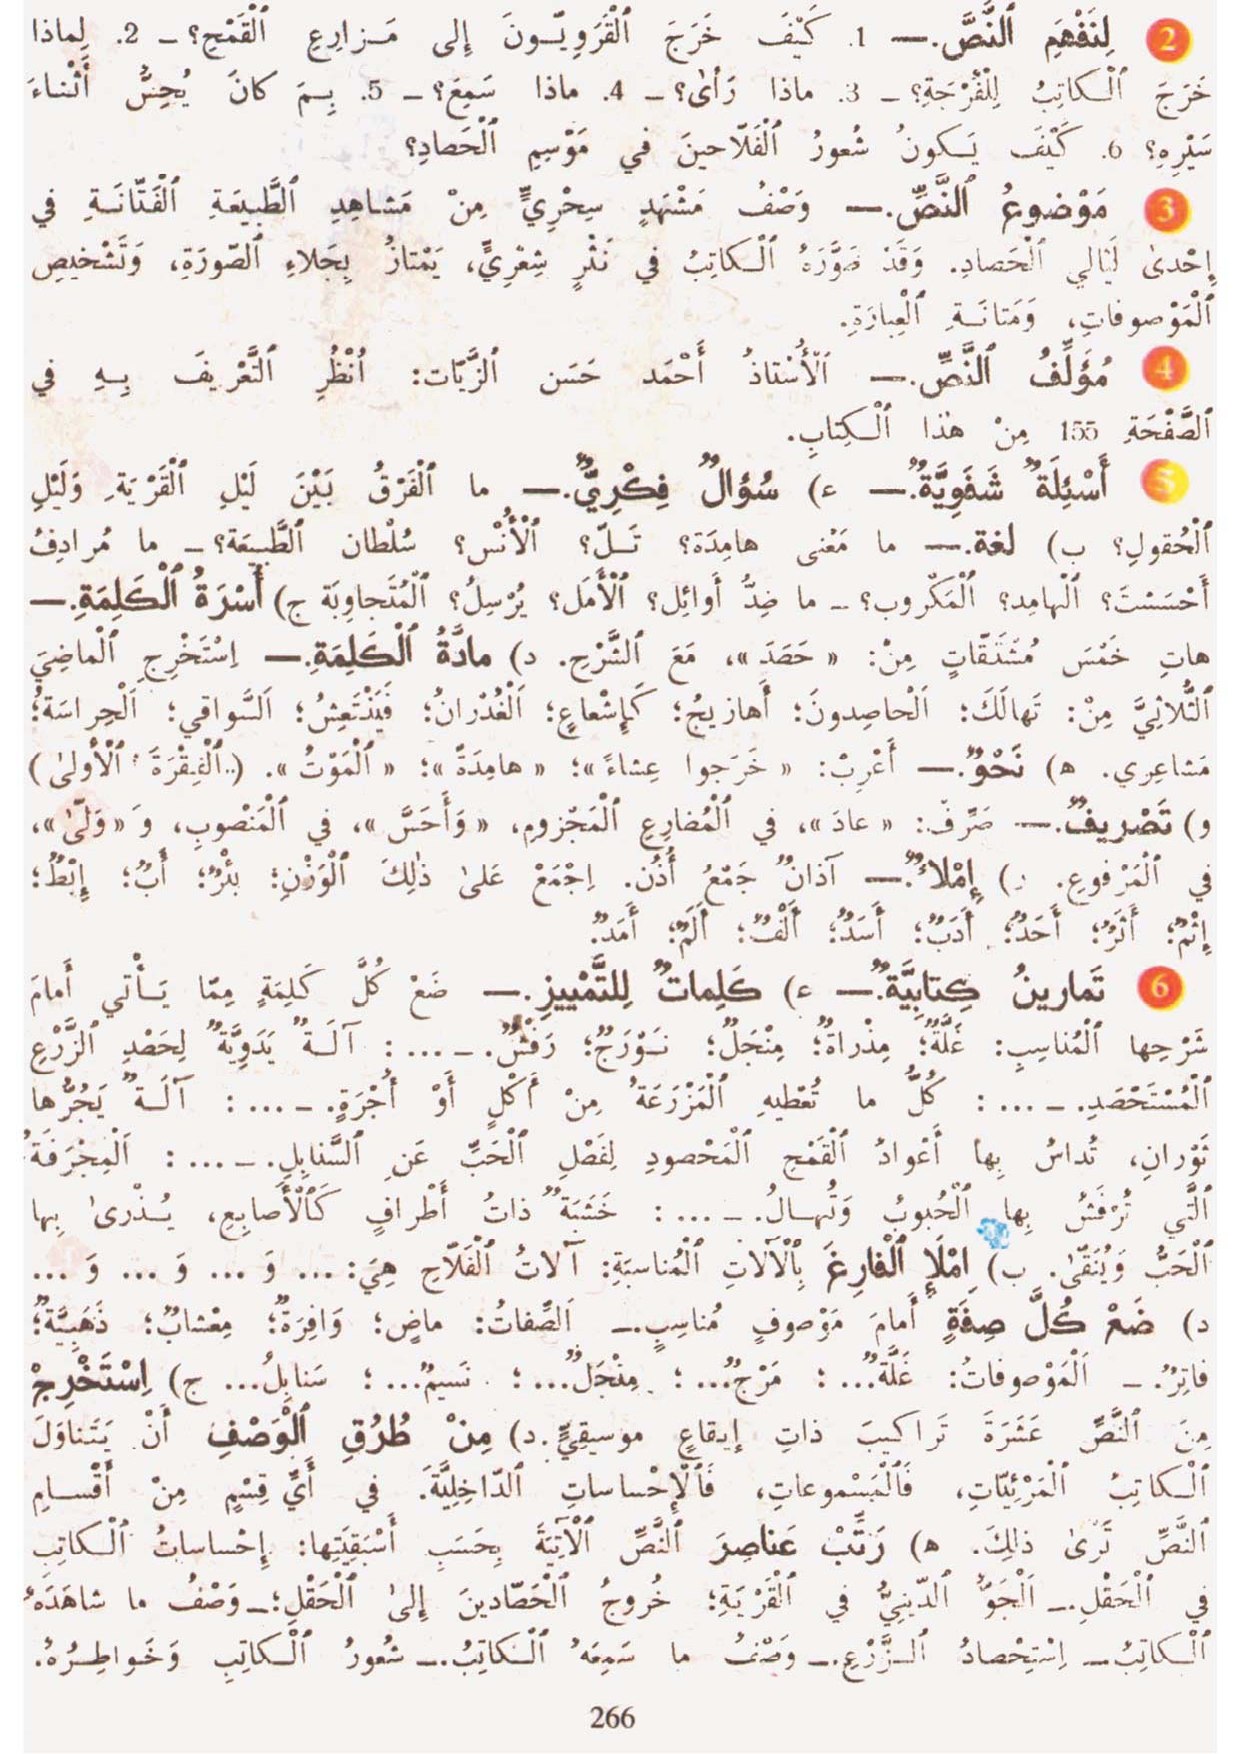 2 لِنَفْهَمِ ٱلنَّصَّ.— 1. كَيْفَ خَرَجَ ٱلْقَرَوِيّـونَ إِلى مَـزارِعِ ٱلْقَمْحِ؟ – 2. لِماذا
خَرَجَ ٱلْـكاتِبُ لِلْفُرْجَةِ؟ – 3. ماذا رَأىٰ؟ – 4. ماذا سَمِعَ؟ – 5. بِـمَ كانَ يُحِسُّ أَثْناءَ
سَيْرِهِ؟ 6. كَيْفَ يَـكونُ شُعورُ ٱلْفَلّاحينَ في مَوْسِمِ ٱلْحَصادِ؟
3 مَوْضوعُ ٱلنَّصِّ.— وَصْفُ مَشْهَدٍ سِحْرِيٍّ مِنْ مَشاهِدِ ٱلطَّبيعَةِ ٱلْفَتّانَـةِ في
إِحْدىٰ لَيالي ٱلْحَصادِ. وَقَدْ صَوَّرَهُ ٱلْـكاتِبُ في نَثْرٍ شِعْرِيٍّ، يَمْتازُ بِجَلاءِ ٱلصّورَةِ، وَتَشْخيصِ
ٱلْمَوْصوفاتِ، وَمَتانَـةِ ٱلْعِبارَةِ.
4 مُؤَلِّفُ ٱلنَّصِّ.— ٱلْأُسْتاذُ أَحْمَد حَسَن ٱلزَّيّات: ٱنْظُرِ ٱلتَّعْريفَ بِـهِ في
ٱلصَّفْحَةِ 155 مِنْ هٰذا ٱلْـكِتابِ.
5 أَسْئِلَةٌ شَفَوِيَّةٌ.— ء) سُؤالٌ فِكْرِيٌّ.— ما ٱلْفَرْقُ بَيْنَ لَيْلِ ٱلْقَرْيَةِ وَلَيْلِ
ٱلْحُقولِ؟ ب) لغة.— ما مَعْنى هامِدَة؟ تَـلّ؟ ٱلْأُنْس؟ سُلْطان ٱلطَّبيعَة؟ – ما مُرادِفُ
أَحْسَسْتَ؟ ٱلْهامِد؟ ٱلْمَكْروب؟ – ما ضِدُّ أَوائِل؟ ٱلْأَمَل؟ يُرْسِلُ؟ ٱلْمُتَجاوِبَة ج) أُسْرَةُ ٱلْكَلِمَةِ.—
هاتِ خَمْسَ مُشْتَقّاتٍ مِنْ: « حَصَدَ »، مَعَ ٱلشَّرْحِ. د) مادَّةُ ٱلْكَلِمَةِ.— اِسْتَخْرِجِ ٱلْماضِيَ
ٱلثُّلاثِيَّ مِنْ: تَهالَكَ؛ اَلْحاصِدونَ؛ أَهازيجُ؛ كَإِشْعاعٍ؛ اَلْغُدْرانُ؛ فَيَنْتَعِشُ؛ اَلسَّواقي؛ اَلْحِراسَةُ؛
مَشاعِري. ﻫ) نَحْوٌ.— أَعْرِبْ: « خَرَجوا عِشاءً »؛ « هامِدَةً »؛ « ٱلْمَوْتُ ». (..ٱلْفِقْرَةَ ٱلْأولىٰ)
و) تَصْريفٌ.— صَرِّفْ: « عادَ »، في ٱلْمُضارِعِ ٱلْمَجْزومِ، « وَأَحَسَّ »، في ٱلْمَنْصوبِ، وَ « وَلّىٰ »،
في ٱلْمَرْفوعِ. ز) إِمْلاءٌ.— آذانٌ جَمْعُ أُذُن. اِجْمَعْ عَلىٰ ذٰلِكَ ٱلْوَزْنِ: بِئْرٌ؛ أَبٌ؛ إِبْطٌ؛
إِثْمٌ؛ أَثَرٌ؛ أَحَدٌ؛ أَدَبٌ؛ أَسَدٌ؛ أَلْفٌ؛ أَلَمٌ؛ أَمَدٌ.
6 تَمارينُ كِتابِيَّةٌ.— ء) كَلِماتٌ لِلتَّمْييزِ.— ضَعْ كُلَّ كَلِمَةٍ مِمّا يَـأْتي أَمامَ
شَرْحِها ٱلْمُناسِبِ: غَلَّةٌ؛ مِذْراةٌ؛ مِنْجَلٌ؛ نَـوْرَجٌ؛ رَفْشٌ. – ... : آلَـةٌ يَدَوِيَّةٌ لِحَصْدِ ٱلزَّرْعِ
ٱلْمُسْتَحْصَدِ. – ... : كُلُّ ما تُعْطيهِ ٱلْمَزْرَعَةُ مِنْ أَكْلٍ أَوْ أُجْرَةٍ. – ... : آلَـةٌ يَجُرُّها
ثَوْرانِ، تُداسُ بِها أَعْوادُ ٱلْقَمْحِ ٱلْمَحْصودِ لِفَصْلِ ٱلْحَبِّ عَنِ ٱلسَّنابِلِ. – ... : اَلْمِجْرَفَةُ
ٱلَّتي تُرْفَشُ بِها ٱلْحُبوبُ وَتُهـالُ. – ... : خَشَبَةٌ ذاتُ أَطْرافٍ كَٱلْأَصابِعِ، يُـذْرىٰ بِها
ٱلْحَبُّ وَيُنَقّىٰ. ب) اِمْلَإِ ٱلْفارِغَ بِٱلْآلاتِ ٱلْمُناسَبَةِ: آلاتُ ٱلْفَلّاحِ هِيَ: ... وَ ... وَ ... وَ ...
د) ضَعْ كُلَّ صِفَةٍ أَمامَ مَوْصوفٍ مُناسِبٍ.— اَلصِّفاتُ: ماضٍ؛ وَافِرَةٌ؛ مِعْشابٌ؛ ذَهَبِيَّةٌ؛
فاتِرٌ. – اَلْمَوْصوفاتُ: غَلَّةٌ... ؛ مَرْجٌ... ؛ مِنْجَلٌ... ؛ نَسيمٌ... ؛ سَنابِلُ... ج) اِسْتَخْرِجْ
مِنَ ٱلنَّصِّ عَشَرَةَ تَراكيبَ ذاتِ إيقاعٍ موسيقِيٍّ. د) مِنْ طُرُقِ ٱلْوَصْفِ أَنْ يَتَناوَلَ
ٱلْـكاتِبُ ٱلْمَرْئِيّاتِ، فَٱلْمَسْموعاتِ، فَٱلْإِحْساساتِ ٱلدّاخِلِيَّةَ. في أَيِّ قِسْمٍ مِنْ أَقْسـامِ
ٱلنَّصِّ تَرىٰ ذٰلِكَ. ﻫ) رَتِّبْ عَناصِرَ ٱلنَّصِّ ٱلْآتِيَةَ بِحَسَبِ أَسْبَقِيَّتِها: إِحْساساتُ ٱلْـكاتِبِ
في ٱلْحَقْلِ.— اَلْجَوُّ ٱلدّينِيُّ في ٱلْقَرْيَةِ؛ خُروجُ ٱلْحَصّادينَ إِلىٰ ٱلْحَقْلِ؛— وَصْفُ ما شاهَدَهُ
ٱلْـكاتِبُ— اِسْتِحْصادُ ٱلـزَّرْعِ.— وَصْفُ ما سَمِعَهُ ٱلْـكاتِبُ.— شُعورُ ٱلْـكاتِبِ وَخَـواطِـرُهُ.
266